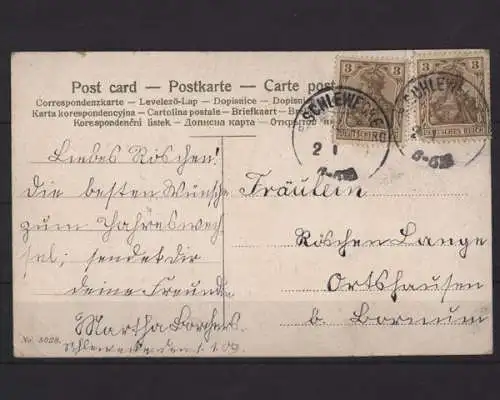 Post card — Postkarte — Carte post
Correspondenzkarte – Levelező-Lap – Dopisnice – Dopisn
Karta korespondencyjna – Cartolina postale – Briefkaart – Brevk
Korespondenční lístek – Дописна карта – Открытое п
3 3
DEUTSCHES REICH
3 3
DEUTSCHES REICH
SCHLEWECKE
2 1
6-
SCHLEWECKE
2
6-
Liebes Röschen!
Die besten Wünsche
zum Jahreswech
sel; sendet dir
deine Freundin
Martha Borchers.
Schlewecke den 1.1.09.
Fräulein
Röschen Lange
Ortshausen
b. Bornum
No. 5028.